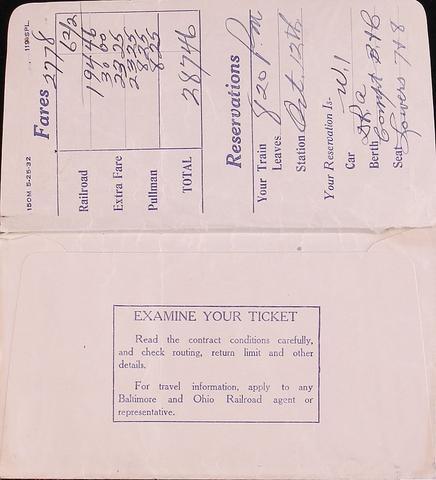 119 SPL.
150M 5-25-32
Fares
2778
622
Railroad 19446
30 00
Extra Fare 23 25
23 25
Pullman 8 25
8 25
TOTAL 28746
Reservations
Your Train
Leaves 8 20 P.M
Station Oct. 12th
Your Reservation Is-
Car W1
Berth Compt B&B
Seat Lowers 7&8
EXAMINE YOUR TICKET
Read the contract conditions carefully,
and check routing, return limit and other
details.
For travel information, apply to any
Baltimore and Ohio Railroad agent or
representative.